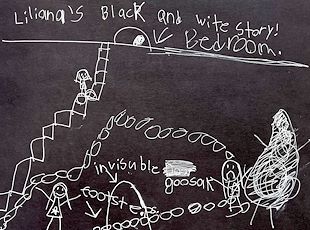 Liliana's Black and wite story!
Bedroom.
invisuble
goosak
footsteps